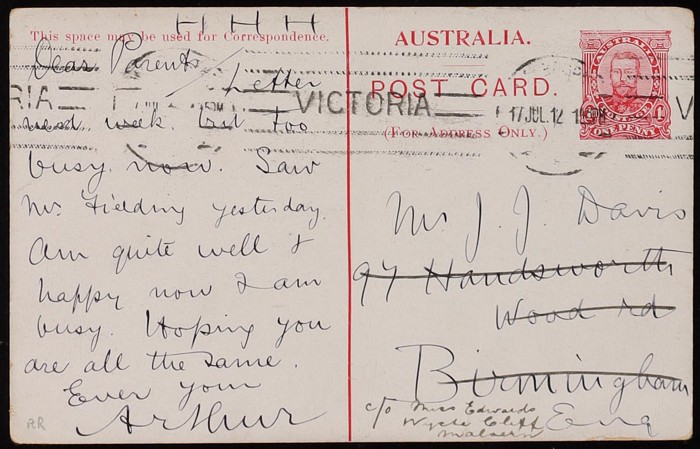 H H H
This space may be used for Correspondence.
Dear Parents
Letter
next week but too
busy now. Saw
Mr. Fielding yesterday.
Am quite well &
happy now I am
busy. Hoping you
are all the same.
Ever your
Arthur
RR
AUSTRALIA.
POST CARD.
(FOR ADDRESS ONLY.)
RIA
VICTORIA
17 JUL. 12
V
AUSTRALIA
ONE PENNY
Mr J. J. Davis
97 Handsworth
Wood rd
Birmingham
Eng
c/o Miss Edwards
Wyche Cliff
Malvern